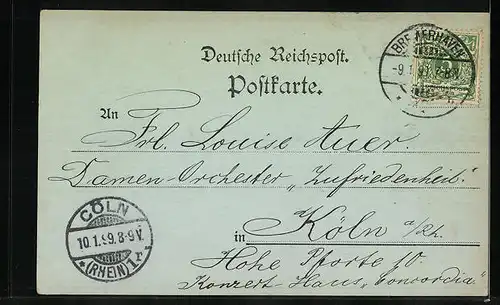 Deutsche Reichspost.
Postkarte.
BREMERHAVEN
-9.1.
An
Frl. Louise Auer.
Damen-Orchester „Zufriedenheit“
CÖLN
10.1.99.8-9V.
*(RHEIN)1r.
in Köln a/Rh.
Hohe Pforte 10
Konzert-Haus „Concordia“